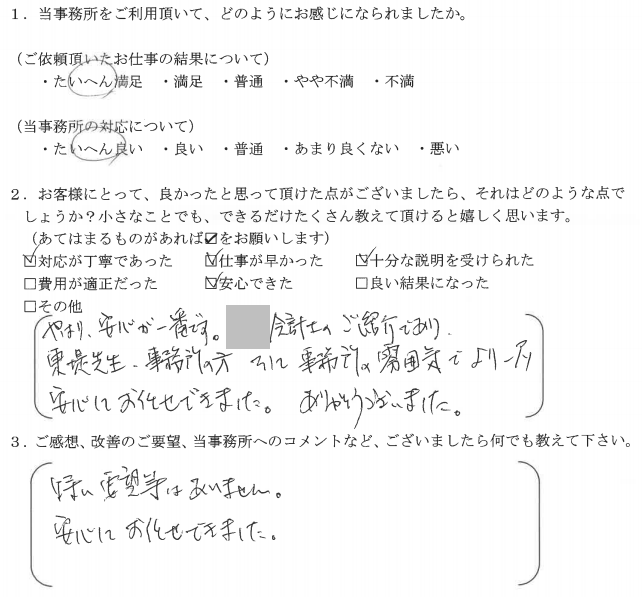 １．当事務所をご利用頂いて、どのようにお感じになられましたか。
（ご依頼頂いたお仕事の結果について）
・たいへん満足　・満足　・普通　・やや不満　・不満
（当事務所の対応について）
・たいへん良い　・良い　・普通　・あまり良くない　・悪い
２．お客様にとって、良かったと思って頂けた点がございましたら、それはどのような点で
しょうか？小さなことでも、できるだけたくさん教えて頂けると嬉しく思います。
（あてはまるものがあれば☑をお願いします）
☑対応が丁寧であった　☑仕事が早かった　☑十分な説明を受けられた
□費用が適正だった　☑安心できた　□良い結果になった
□その他
やはり、安心が一番です。　会計士のご紹介であり、
東堤先生、事務所の方　そして事務所の雰囲気でより一層
安心してお任せできました。ありがとうございました。
３．ご感想、改善のご要望、当事務所へのコメントなど、ございましたら何でも教えて下さい。
要望等はありません。
安心してお任せできました。